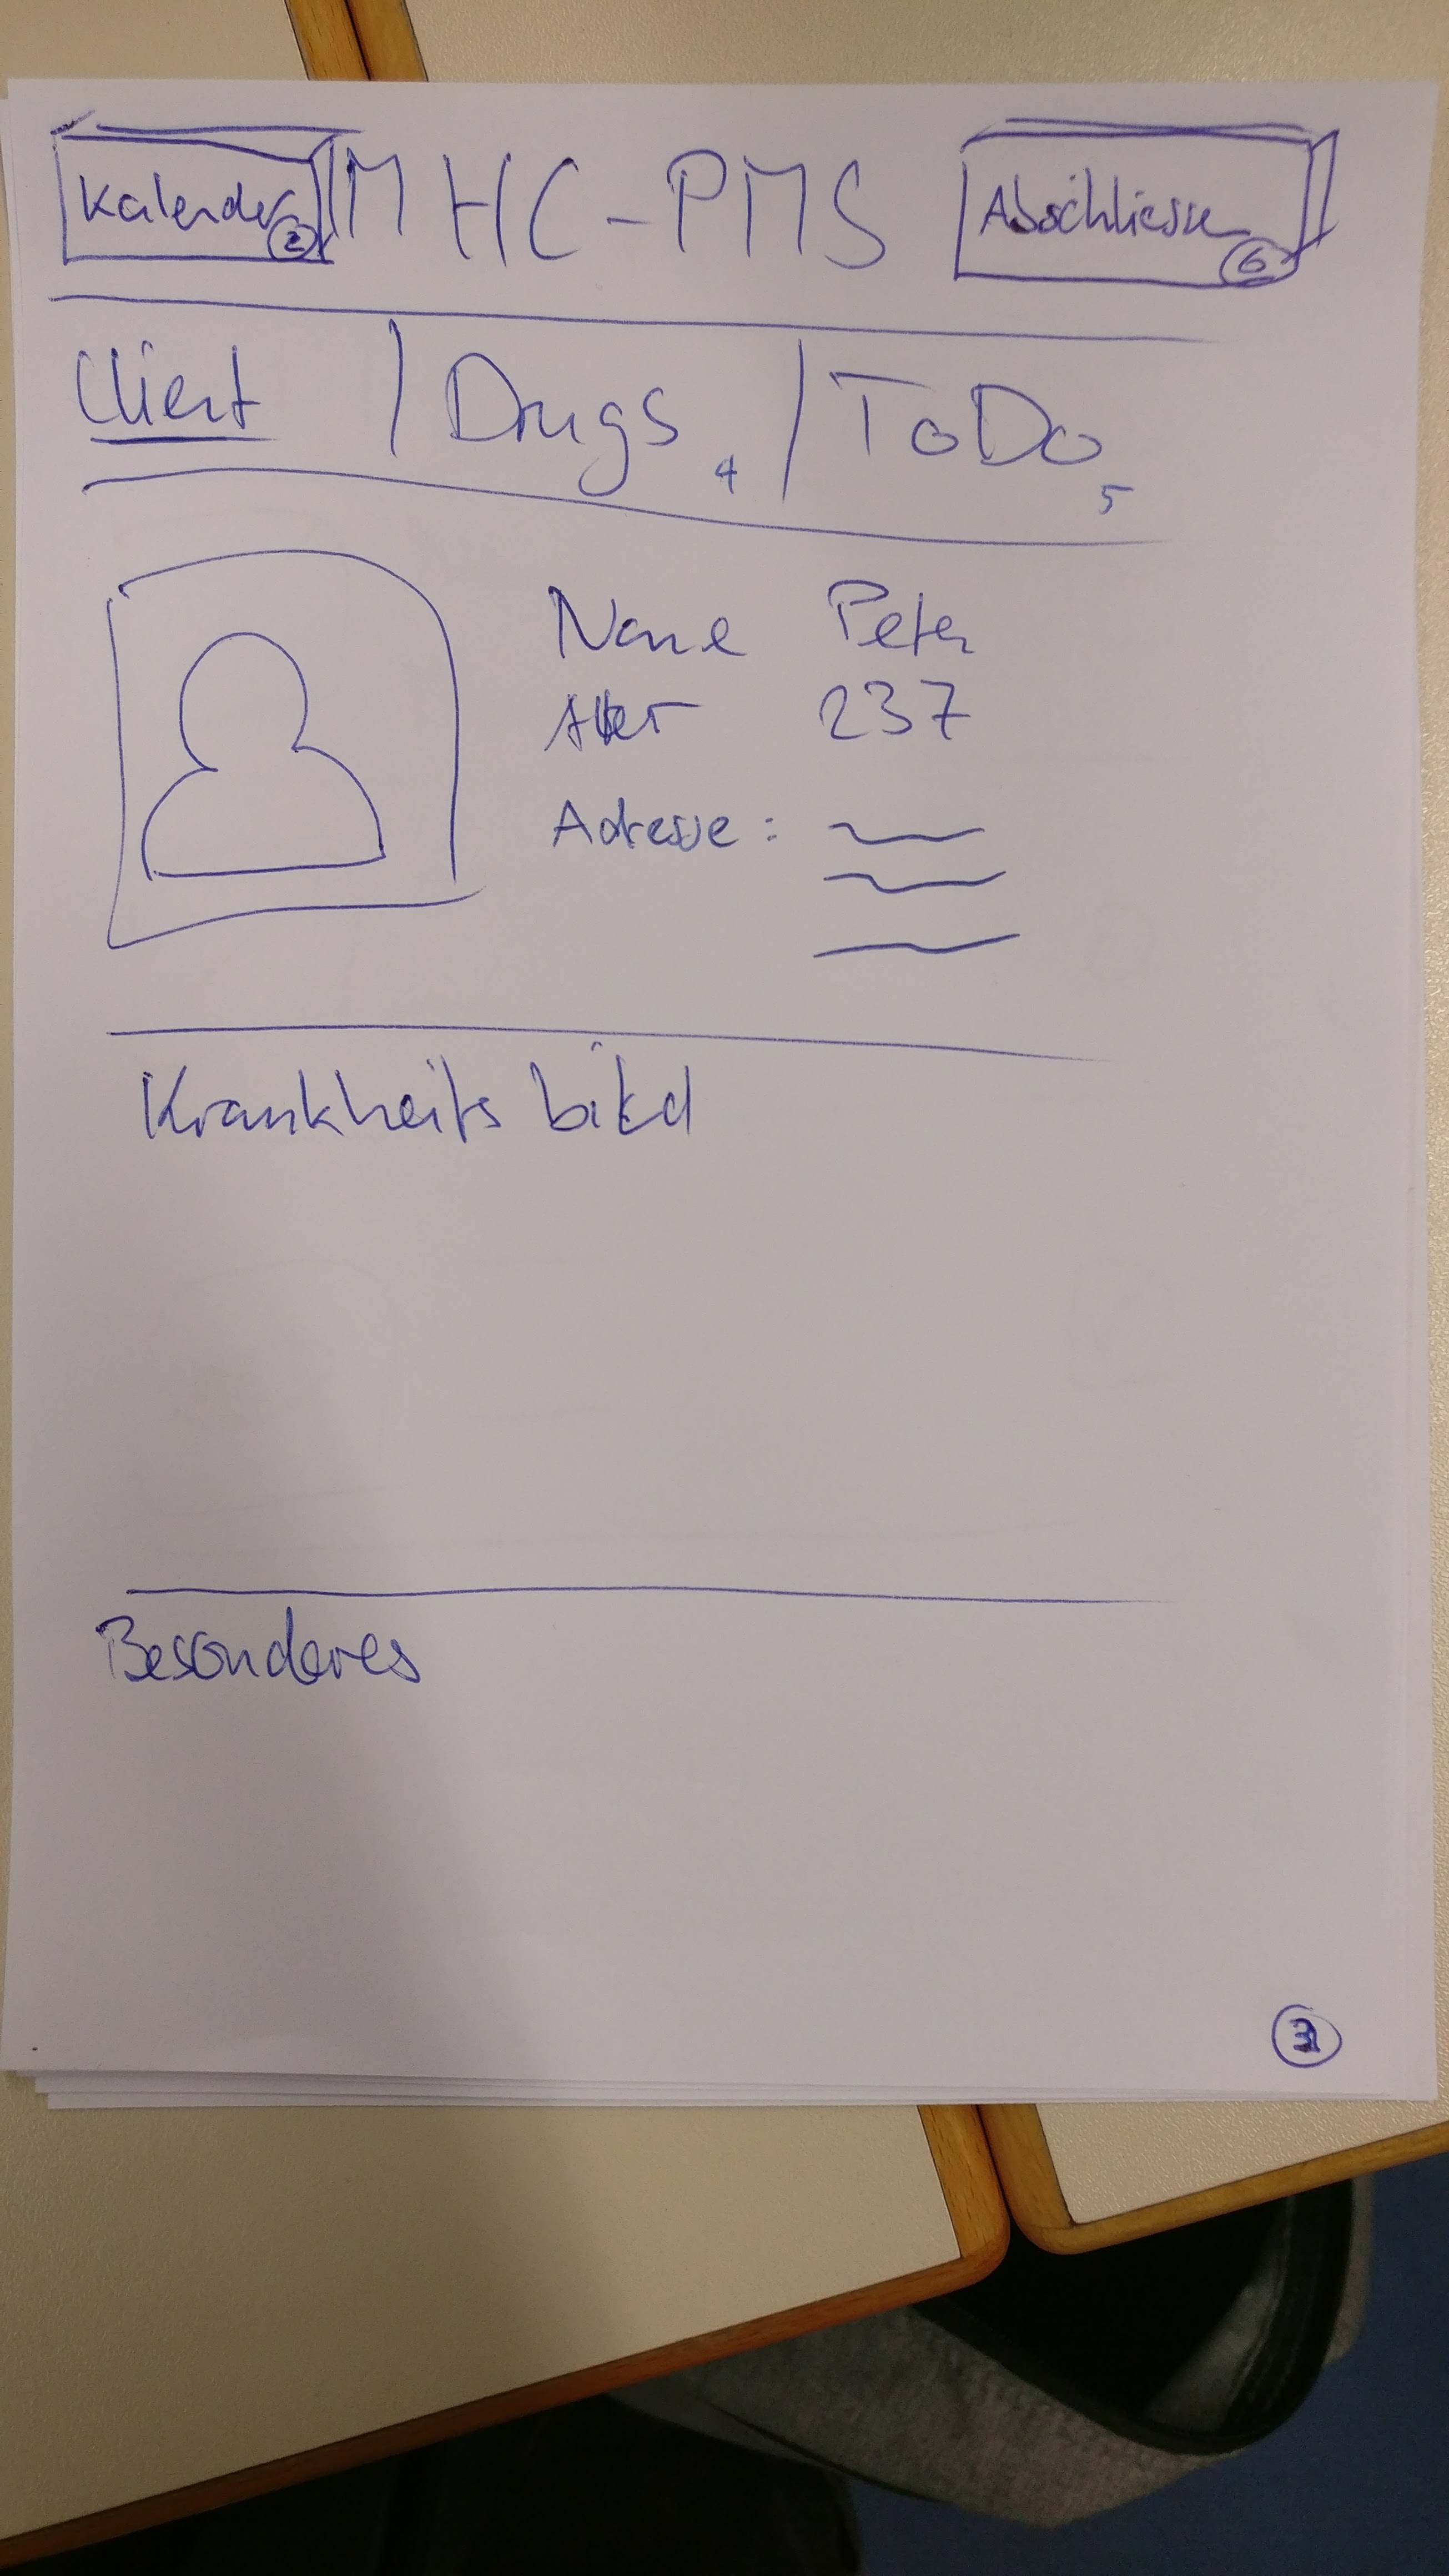 Kalender 2 MHC-PMS Abschliessen 6
Client / Drugs 4 / ToDo 5
Name Peter
Alter 237
Adresse :
Krankheitsbild
Besonderes
3